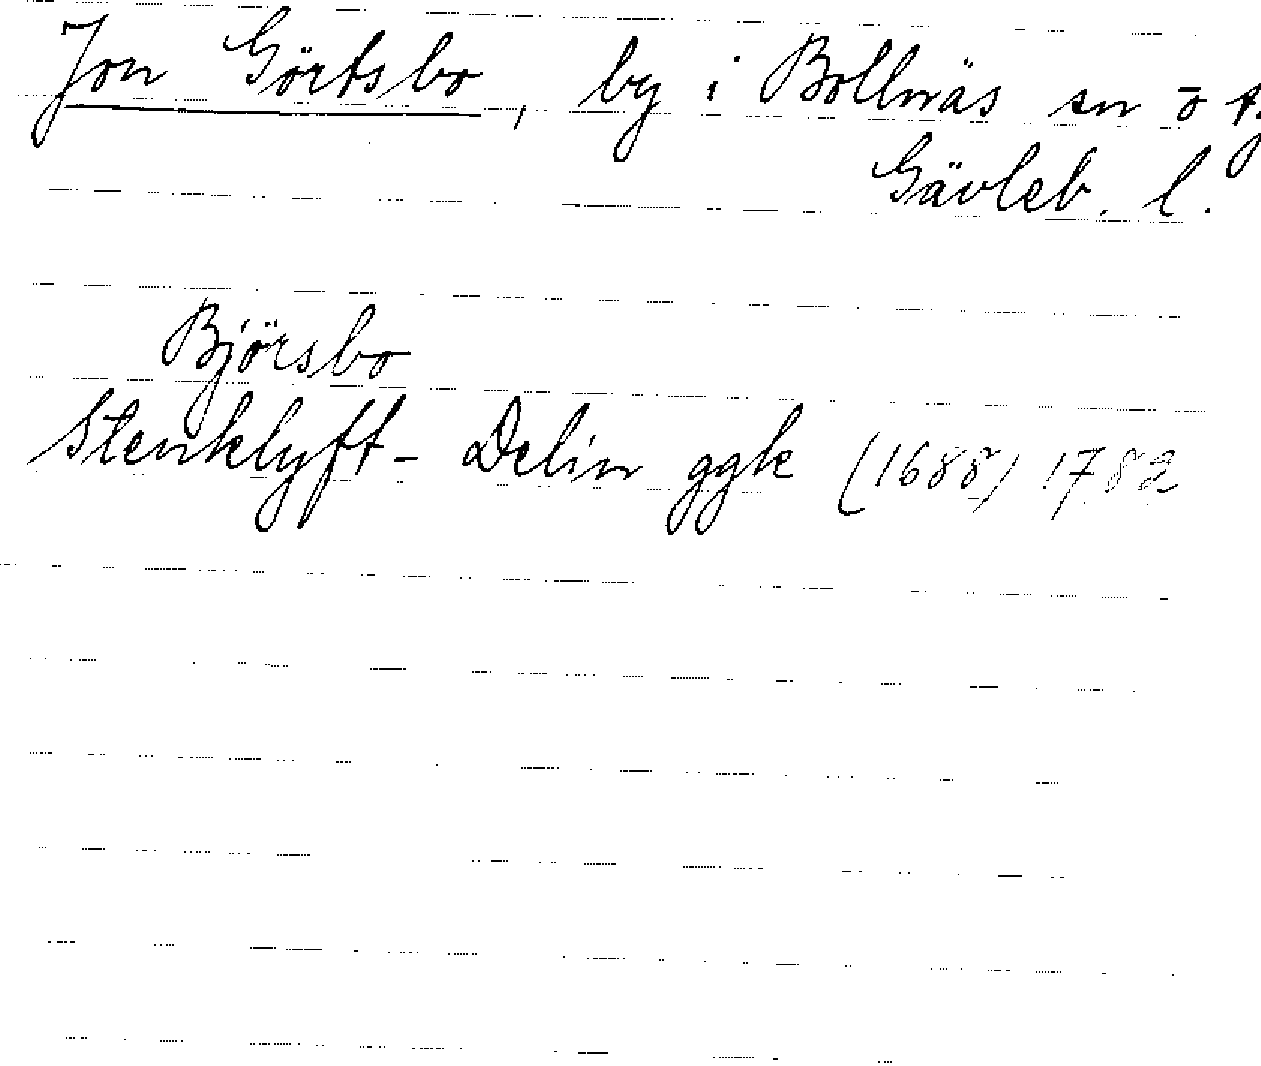 Jon Görtsbo, by i Bollnäs sn o tg
Gävleb. l.
Björsbo
Stenklyft - Delin ggk (1688) 1782